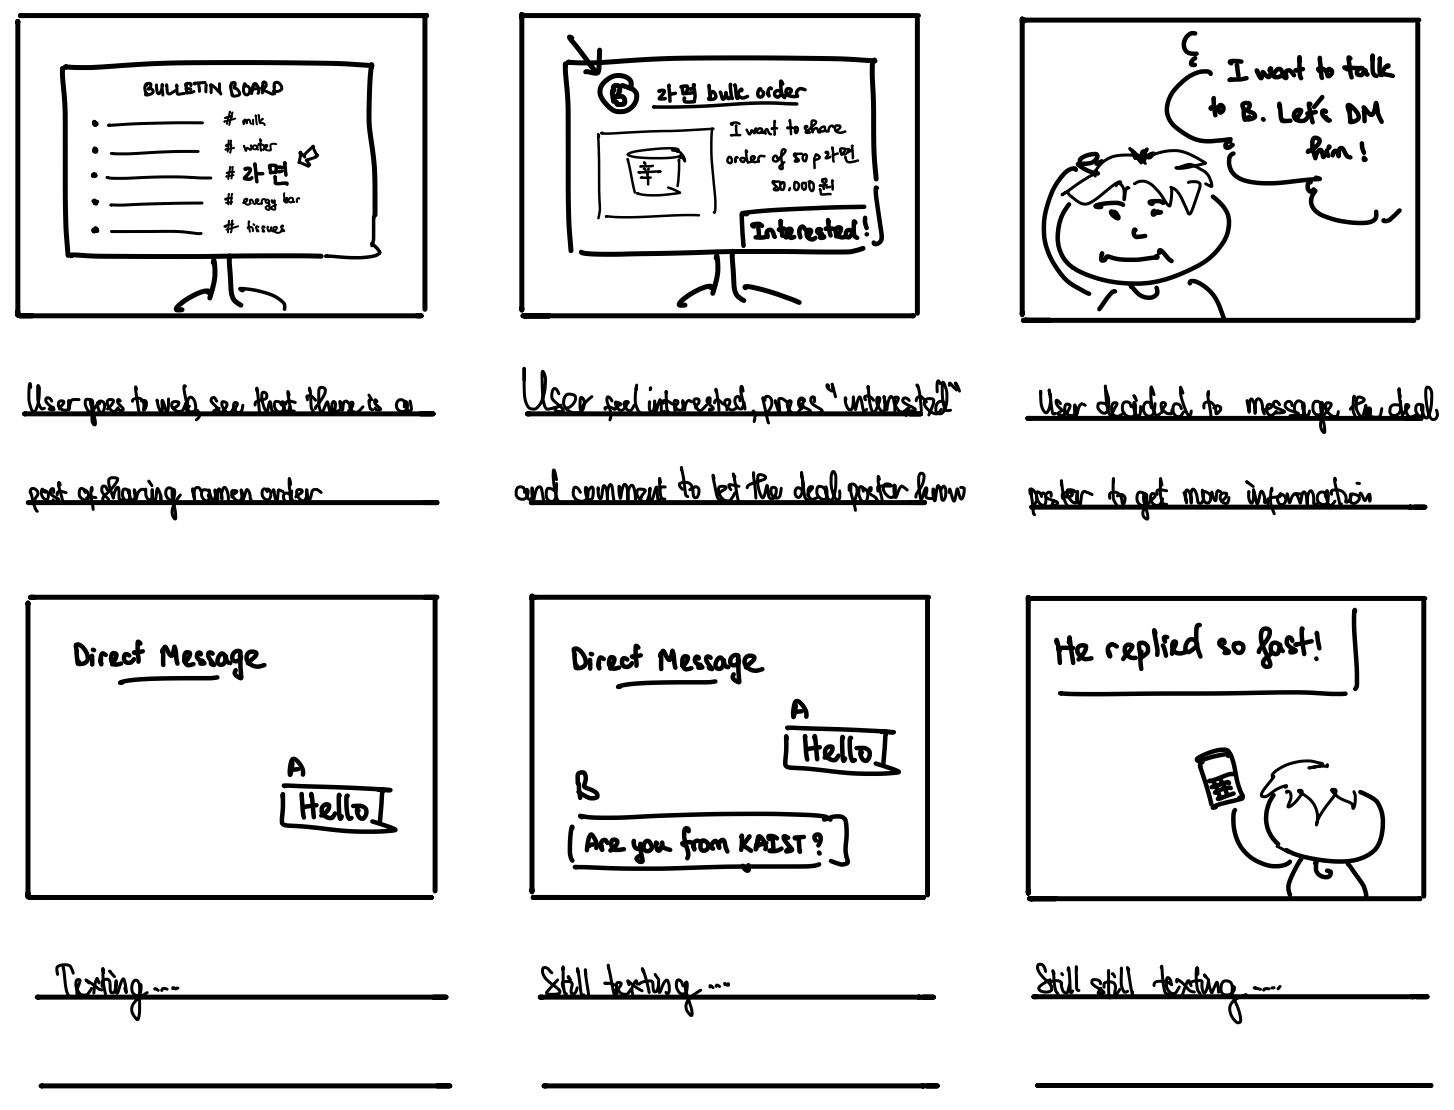 BULLETIN BOARD
# milk
# water
# 라면
# energy bar
# tissues
User goes to web, see that there is a
post of sharing ramen order
B 라면 bulk order
I want to share
order of 50 p 라면
50.000 원
Interested!
User feel interested, press "interested"
and comment to let the deal poster know
I want to talk
to B. Let's DM
him!
User decided to message the deal
poster to get more information
Direct Message
A
Hello
Texting....
Direct Message
A
Hello
B
Are you from KAIST?
Still texting...
He replied so fast!
Still still texting....